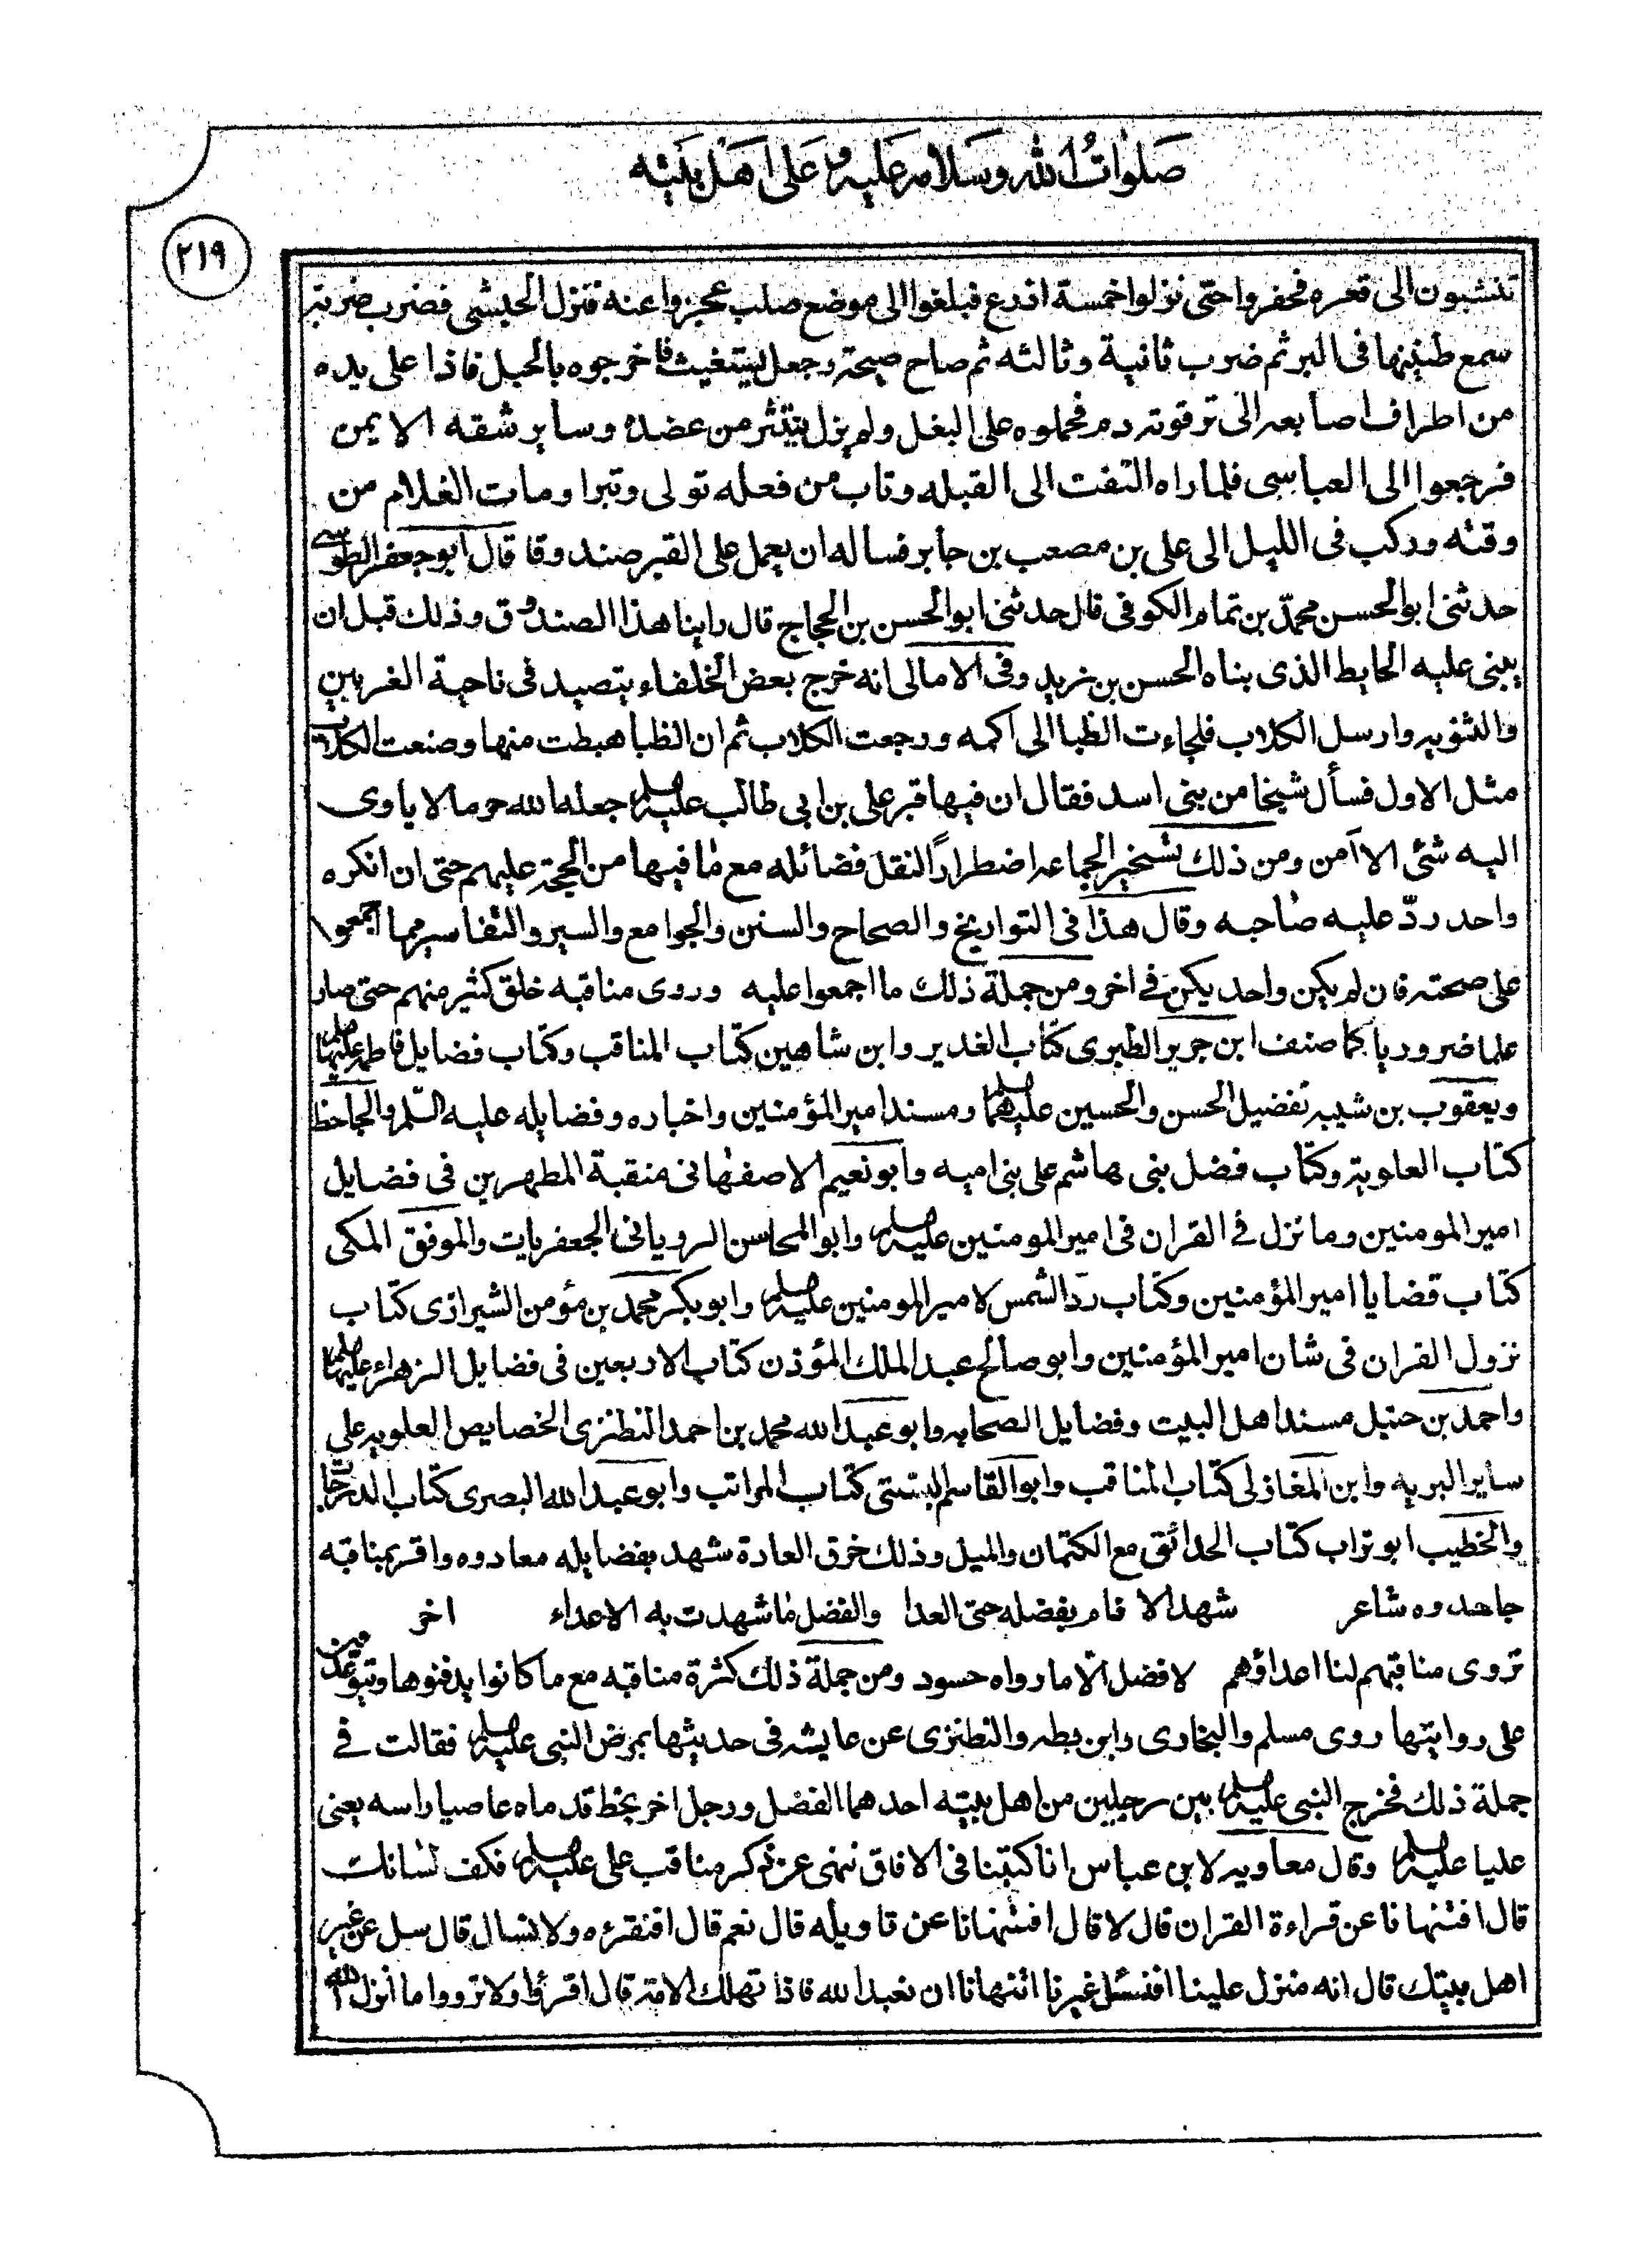 صلوات الله وسلامه عليه وعلى اهل بيته
٢١٩
تنشبون الى قعره فحفروا حتى نزلوا خمسة اذرع فبلغوا الى موضع صلب عجزوا عنه فنزل الحبشى فضرب ضربة
سمع طنينها فى البر ثم ضرب ثانية وثالثه ثم صاح صيحة وجعل يستغيث فاخرجوه بالحبل فاذا على يده
من اطراف اصابعه الى ترقوته دم فحملوه على البغل ولم يزل ينتثر من عضده وساير شقه الايمن
فرجعوا الى العباسى فلما راه التفت الى القبله وتاب من فعله تولى وتبرا ومات الغلام من
وقته وركب فى الليل الى على بن مصعب بن جابر فساله ان يعمل على القبر صندوقا قال ابو جعفر الطوسى
حدثنى ابو الحسن محمد بن تمام الكوفى قال حدثنى ابو الحسن بن الحجاج قال راينا هذا الصندوق وذلك قبل ان
يبنى عليه الحايط الذى بناه الحسن بن زيد وفى الامالى انه خرج بعض الخلفاء يتصيد فى ناحية الغريين
والثنويه وارسل الكلاب فلجاءت الظبا الى اكمه ورجعت الكلاب ثم ان الظبا هبطت منها وصنعت الكلاب
مثل الاول فسأل شيخا من بنى اسد فقال ان فيها قبر على بن ابى طالب عليه السلم جعله الله حرما لا ياوى
اليه شئى الا آمن ومن ذلك تسخير الجماعه اضطرارًا لنقل فضائله مع ما فيها من الحجة عليهم حتى ان انكره
واحد ردّ عليه صاحبه وقال هذا فى التواريخ والصحاح والسنن والجوامع والسير والتفاسير مما اجمعوا
على صحته فان لم يكن واحد يكن فى اخر ومن جملة ذلك ما اجمعوا عليه وروى مناقبه خلق كثير منهم حتى صار
علما ضروريا كما صنف ابن جرير الطبرى كتاب الغدير وابن شاهين كتاب المناقب وكتاب فضايل فاطمه عليها السلم
ويعقوب بن شيبه تفضيل الحسن والحسين عليهما السلم ومسند امير المؤمنين واخباره وفضايله عليه السّلم والجاحظ
كتاب العلوية وكتاب فضل بنى هاشم على بنى اميه وابو نعيم الاصفهانى منقبة المطهرين فى فضايل
امير المومنين وما نزل فى القران فى امير المومنين عليه السلم وابو المحاسن الرويانى الجعفريات والموفق المكى
كتاب قضايا امير المؤمنين وكتاب ردّ الشمس لامير المومنين عليه السلم وابو بكر محمد بن مؤمن الشيرازى كتاب
نزول القران فى شان امير المؤمنين وابو صالح عبد الملك المؤذن كتاب الاربعين فى فضايل الزهراء عليها السلم
واحمد بن حنبل مسند اهل البيت وفضايل الصحابه وابو عبد الله محمد بن احمد النطنزى الخصايص العلويه على
ساير البريه وابن المغازلى كتاب المناقب وابو القاسم البستى كتاب المراتب وابو عبد الله البصرى كتاب الدرجات
والخطيب ابو تراب كتاب الحدائق مع الكتمان والميل وذلك خرق العادة شهد بفضايله معادوه واقر بمناقبه
جاحدوه شاعر شهد الانام بفضله حتى العدا والفضل ما شهدت به الاعداء اخر
تروى مناقبهم لنا اعداؤهم لا فضل الا ما رواه حسود ومن جملة ذلك كثرة مناقبه مع ما كانوا يدفنوها ويتوعدون
على روايتها روى مسلم والبخارى وابن بطه والنطنزى عن عايشه فى حديثها بمرض النبى عليه السلم فقالت فى
جملة ذلك فخرج النبى عليه السلم بين رجلين من اهل بيته احدهما الفضل ورجل اخر يخط قدماه عاصبا راسه يعنى
عليا عليه السلم وقال معاويه لابن عباس انا كتبنا فى الافاق ننهى عن ذكر مناقب على عليه السلم فكف لسانك
قال افتنهانا عن قراءة القران قال لا قال افتنهانا عن تاويله قال نعم قال افنقرئه ولا نسال قال سل عن غير
اهل بيتك قال انه منزل علينا افنسئل غيرنا اتنهانا ان نعبد الله فاذا تهلك الامة قال اقرؤا ولا ترووا ما انزل الله